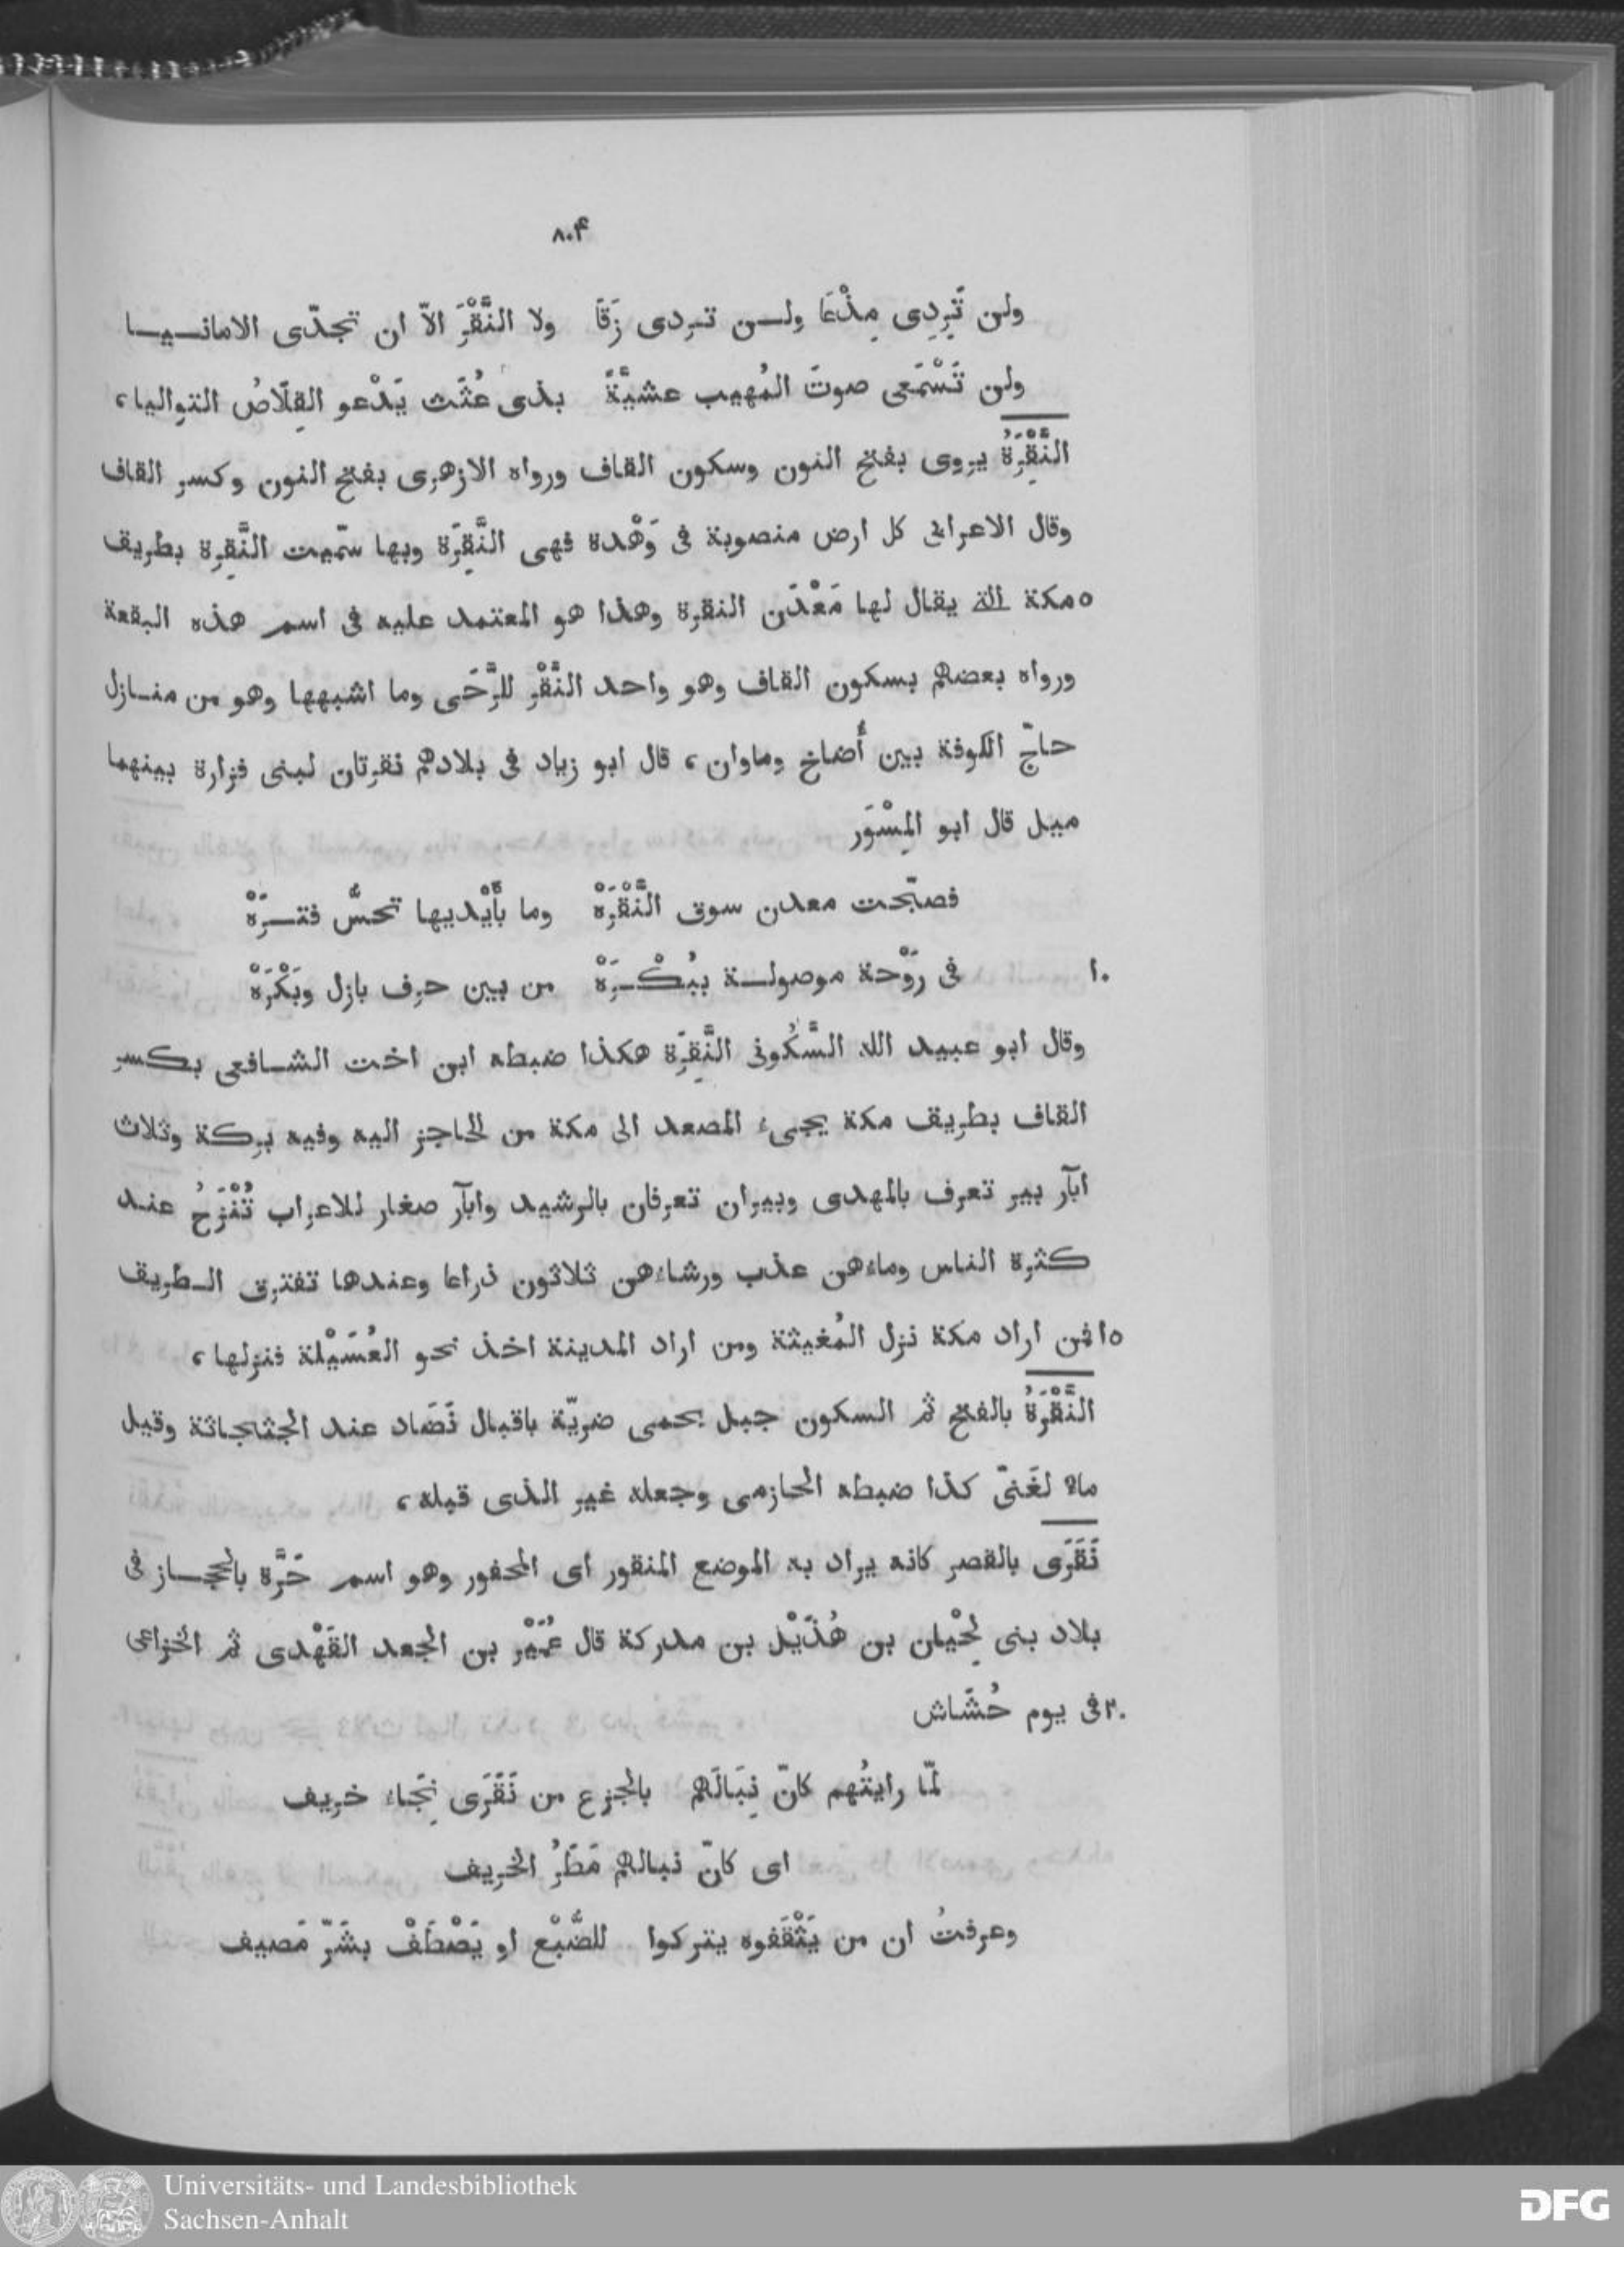 ٨٠۴
ولن تَرِدِى مِذْعَا ولـــن تــردى زَقَا ولا النَّقْرَ الاّ ان تجدّى الامانــيــا
ولن تَسْمَعى صوتَ المُهيب عشيَّةً بذى عُثَث يَدْعو القِلَاصُ التواليا،
النَّقِْرَةُ يروى بفتح النون وسكون القاف ورواه الازهرى بفتح النون وكسر القاف
وقال الاعرابى كل ارض منصوبة فى وَهْدة فهى النَّقِرَة وبها سمّيت النَّقِرة بطريق
٥ مكة الله يقال لها مَعْدَن النقرة وهذا هو المعتمد عليه فى اسم هذه البقعة
ورواه بعضهم بسكون القاف وهو واحد النَّقْر للرَّحَى وما اشبهها وهو من منــازل
حاجّ الكوفة بين أُضاخ وماوان، قال ابو زياد فى بلادهم نقرتان لبنى فزارة بينهما
ميل قال ابو المِسْوَر
فصبّحت معدن سوق النَّقْرَهْ وما بأَيْديها تحسُّ فتــرَهْ
١٠ فى رَوْحة موصولــة ببُكْــرَهْ من بين حرف بازل وبَكْرَهْ
وقال ابو عبيد الله السَّكُونى النَّقِرَة هكذا ضبطه ابن اخت الشــافعى بكسر
القاف بطريق مكة يجىء المصعد الى مكة من الحاجز اليه وفيه بركة وثلاث
ابآر بير تعرف بالمهدى وبيران تعرفان بالرشيد وابآر صغار للاعراب تُنْزَحُ عند
كثرة الناس وماءهن عذب ورشاءهن ثلاثون ذراعا وعندها تفترق الــطريق
١٥ فمن اراد مكة نزل المُغيثة ومن اراد المدينة اخذ نحو العُسَيْلة فنزلها،
النَّقْرَةُ بالفتح ثر السكون جبل بحمى ضريّة باقبال نَضَاد عند الجثجاثة وقيل
ماء لغَنىّ كذا ضبطه الحازمى وجعله غير الذى قبله،
نَقَرَى بالقصر كانه يراد به الموضع المنقور اى المحفور وهو اسم حَرَّة بالحجــاز فى
بلاد بنى لِحْيان بن هُذَيْل بن مدركة قال عُمَيْر بن الجعد القَهْدى ثر الخزاعى
٢٠ فى يوم حُشَاش
لمّا رايتُهم كانّ نِبَالَهم بالجزع من نَقَرَى نِجَاء خريف
اى كانّ نبالهم مَطَرُ الخريف
وعرفتُ ان من يَثْقَفوه يتركوا للضَّبْع او يَصْطَفْ بشَرّ مَصيف
Universitäts- und Landesbibliothek
Sachsen-Anhalt
DFG